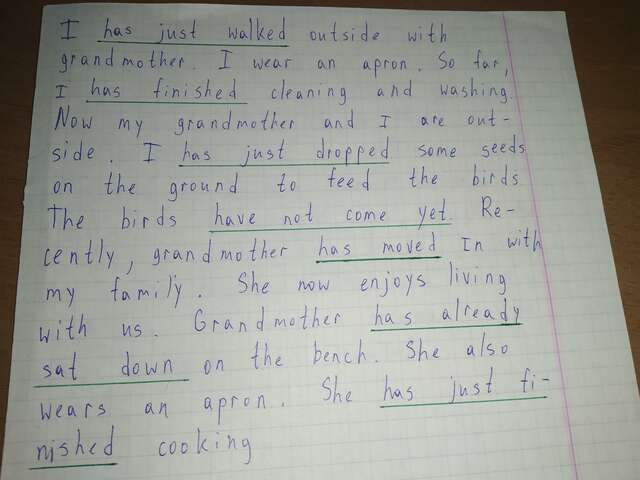 I has just walked outside with
grandmother. I wear an apron. So far,
I has finished cleaning and washing.
Now my grandmother and I are out-
side. I has just dropped some seeds
on the ground to feed the birds
The birds have not come yet. Re-
cently, grandmother has moved In with
my family. She now enjoys living
with us. Grandmother has already
sat down on the bench. She also
wears an apron. She has just fi-
nished cooking